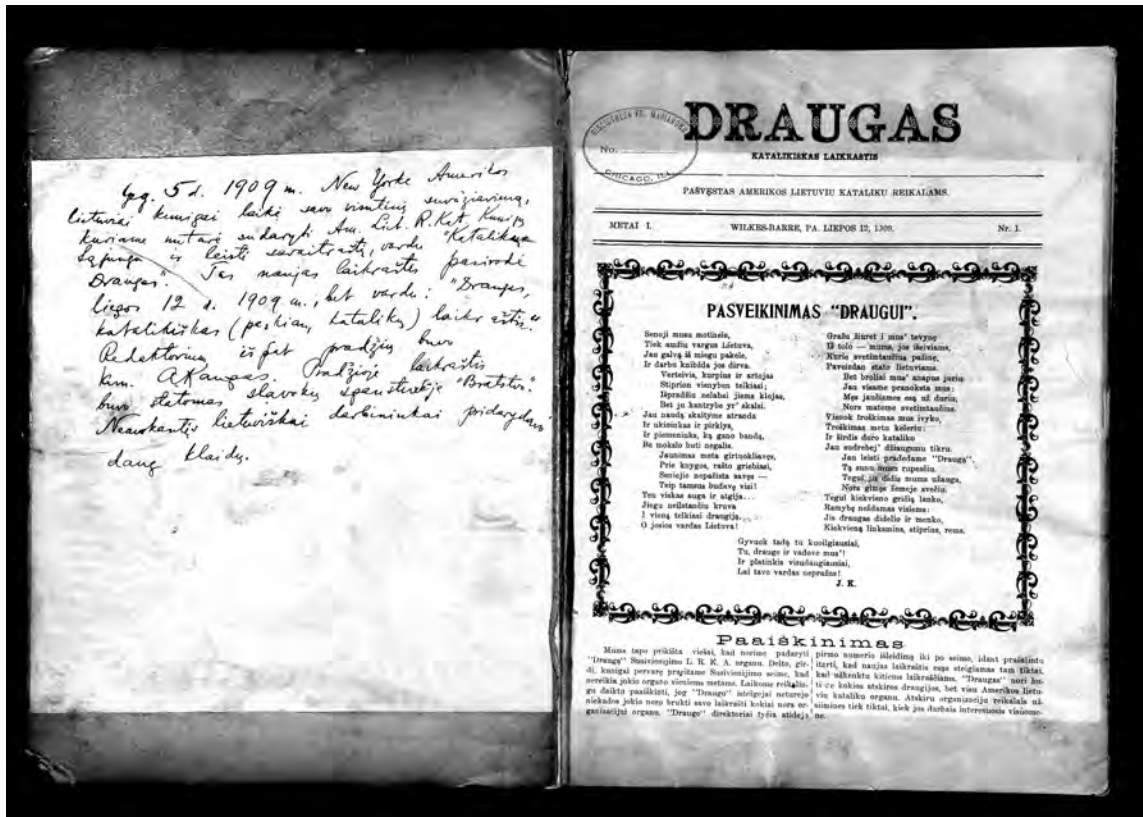 Geg. 5 d. 1909 m. New Yorke Amerikos
lietuviai kunigai laikė savo visuotinį suvažiavimą,
kuriame nutarė sudaryti Am. Liet. R. Kat. Kunigų
Sąjungą ir leisti savaitraštį, vardu "Katalikas
Draugas". Tas naujas laikraštis pasirodė
liepos 12 d. 1909 m., bet vardu: "Draugas,
katalikiškas (peskiau katalikų) laikraštis."
Redaktorium iš pat pradžių buvo
kun. A Kaupas. Pradžioje laikraštis
buvo statomas slavokų spaustuvėje "Bratstvo".
Nemokantys lietuviškai darbininkai pridarydavo
daug klaidų.
No.
CHICAGO, ILL.
DRAUGAS
KATALIKISKAS LAIKRASTIS
PAŠVĘSTAS AMERIKOS LIETUVIU KATALIKU REIKALAMS.
METAI I.
WILKES-BARRE, PA. LIEPOS 12, 1909.
Nr. 1.
PASVEIKINIMAS "DRAUGUI".
Senoji musu motinėle,
Tiek amžiu vargus Lietuva,
Jau galvą iš miegu pakele,
Ir darbu knibžda jos dirva.
Verteivis, kurpius ir artojas
Stiprion vienyben telkiasi;
Išpradžiu nelabai jiems klojas,
Bet ju kantrybe yr' skalsi.
Jau naudą skaityme atranda
Ir ukininkas ir pirklys,
Ir piemeninks, ką gano bandą,
Be mokslo buti negalis.
Jaunimas meta girtuokliavęs,
Prie knygos, rašto griebiasi,
Seniejie nepažista savęs —
Teip tamsus budavę visi!
Ten viskas auga ir atgija...
Jiegu neilstančiu kruva
I vieną telkiasi draugiją...
O josios vardas Lietuva!
Gražu žiuret i mus' tevynę
Iš tolo — mums, jos išeiviams,
Kurie svetimtaučius pažinę,
Pavaizdan stato lietuviams.
Bet broliai mus' anapus juriu
Jau visame pranoksta mus:
Męs jaučiames esą už duriu,
Nors matome svetimtaučius.
Visuok troškimas mus ivyko,
Troškimas metu keleriu:
Ir širdis doro kataliko
Jau sudrebėj' džiaugsmu tikru.
Jau leisti pradedame "Draugą",
Tą sunu musu rupesčiu.
Tegul jis didis mums užauga,
Nors gimęs žemeje svečiu.
Tegul kiekvieno grižią lanko,
Ramybę nešdamas visiems:
Jis draugas didelio ir menko,
Kiekvieną linksmina, stiprins, rems.
Gyvuok tadą tu kuoilgiausiai,
Tu, drauge ir vadove mus'!
Ir platinkis visudaugiausiai,
Lai tavo vardas nepražus!
J. K.
Paaiškinimas
Mums tapo prikišta viešai, kad norime padaryti
"Draugą" Susivienijimo L. R. K. A. organu. Delto, gir-
di, kunigai pervarę praeitame Susivienijimo seime, kad
nereikia jokio organo vieniems metams. Laikome reikalin-
gu daiktu paaiškinti, jog "Draugo" isteigejai neturejo
niekados jokio noro brukti savo laikrašti kokiai nors or-
ganizacijai organu. "Draugo" direktoriai tyčia atidejo
pirmo numerio išleidimą iki po seimo, idant prašalintu
itarti, kad naujas laikraštis esąs steigiamas tam tiktai,
kad užkenktu kitiems laikraščiams. "Draugas" nori bu-
ti ne kokios atskiros draugijos, bet visu Amerikos lietu-
viu kataliku organu. Atskiru organizaciju reikalais už-
siimines tiek tiktai, kiek jos darbais interesuosis visuome-
ne.